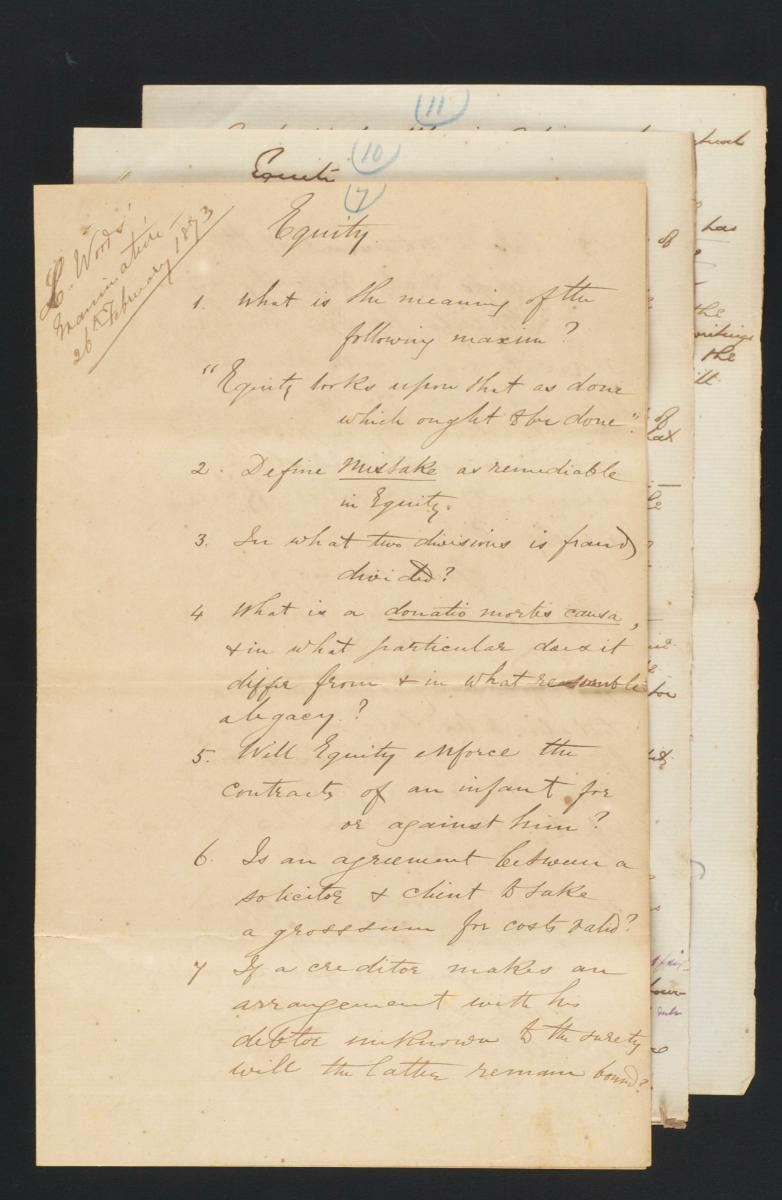 (11)
(10)
Equity
(7)
L. Woods'
Examination
26th February 1873
Equity
1. What is the meaning of the
following maxim?
"Equity looks upon that as done
which ought to be done".
2. Define Mistake as remediable
in Equity.
3. In what two divisions is fraud
divided?
4 What is a donatio mortis causa,
& in what particular does it
differ from & in what resemble
a legacy?
5. Will Equity enforce the
contracts of an infant for
or against him?
6. Is an agreement between a
solicitor & client to take
a gross sum for costs valid?
7 If a creditor makes an
arrangement with his
debtor unknown to the surety
will the latter remain bound?
of
has
the
the
of